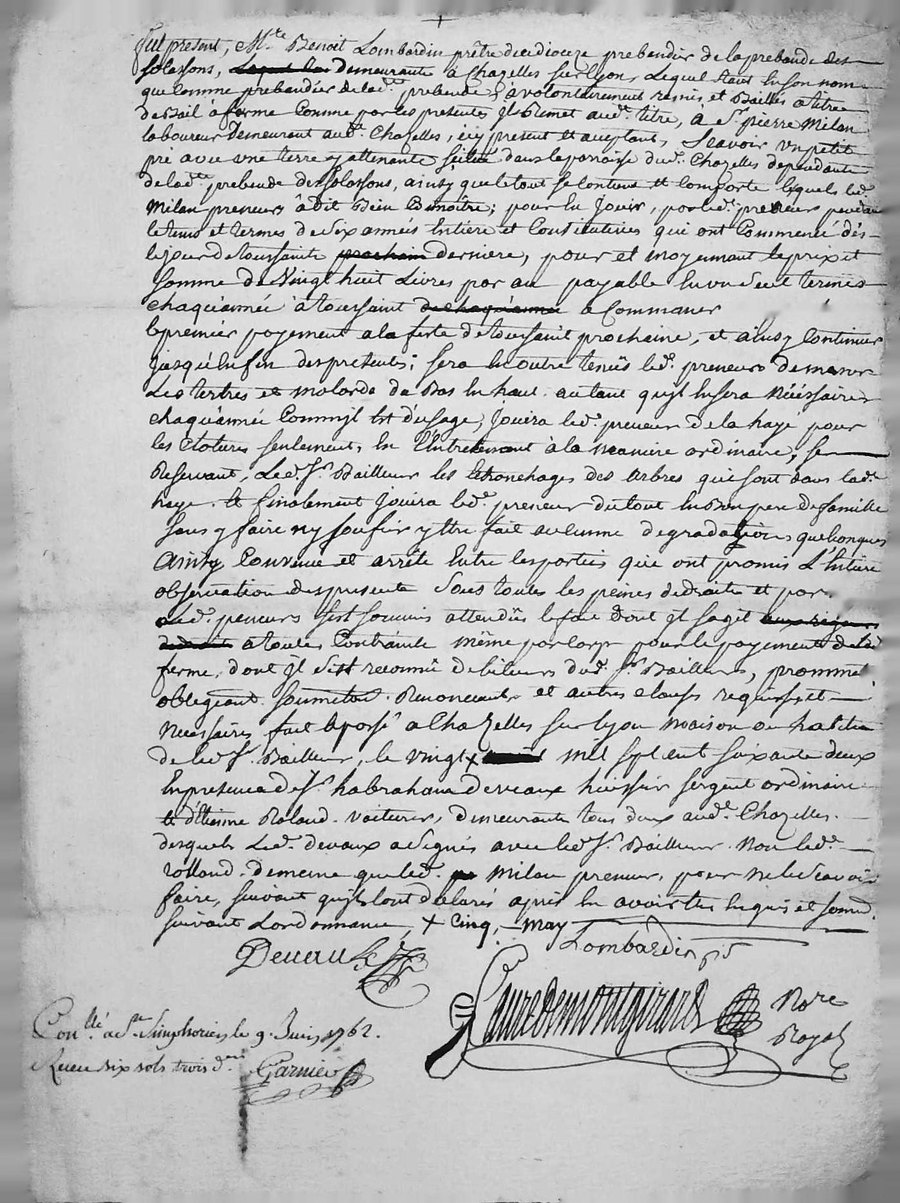 Fut present, M.re Benoit Lombardin prêtre du dioceze prebandier de la prebande des
solassons, demeurante à Chazelles sur Lyon, Lequel étant en son nom
que comme prebandier de lad.e prebende, a volontairement remis, et Baillés a titre
de Bail à ferme comme par les presentes Jl Remet aud.t titre, a S.r pierre Milan
laboureur demeurant aud.t Chazelles, icy present et aceptant, Scavoir un petit
pré avec une terre y attenante scitué dans la paroisse dud.t Chazelles, dependante
de lad.te prebende des solassons, ainsy que le tout se contient et comporte lequels led.t
Milan preneur à dit Bien Connoitre; pour en Jouir, par led.t preneur pendant
le tems et termes de six années Entiere et Consecutives qui ont Commencé dès
le jour de toussaints prochain derniere, pour et moyennant le prix et
somme de Vingt huit Livres par an payable en un seul termes
chaqu'année à toussaint de chaqu'année a Commancer
le premier payement a la feste de toussaint prochaine, et ainsy Continuer
jusqu'en fin des presentes; sera en outre tenüs led.t preneur de
Les tertres et molards de Bas en haut autant qu'jl en sera néessaire
chaqu'année Comm'jl Est d'usage, Jouira led.t preneur de la haye pour
les clotures seulement, En l'Entretenant à la maniere ordinaire, se
Reservant, Led.t S.r Bailleur les Etronchages des arbres qui sont dans lad.e
haye. Et finalement Jouira led.t preneur du tout en Bon pere de famille
sans y faire ny souffrir y Etre fait aucune degradations quelconques
Ainsy Convenu et arrêté Entre les parties qui ont promis L'Entiere
observation des presente sous toutes les peines de droits et par
Led.t preneurs s'est soumis attendüs le fait dont jl s'agit aux rigeurs
a toutes Contrainte même par corps pour le payement de lad.e
ferme, dont jl s'est reconnü debiteurs dud.t S.r Bailleurs, promett.
obligeant soumettant Renonceant et autres clauses requises et
Necessaires, fait et passé a Chazelles sur Lyon maison ou habite
de led.t S.r Bailleur, le vingt x mil sept cent soixante deux
En presence de S.r habraham deveaux huissier sergent ordinaire
et d'Etienne Roland. voiturier, demeurante tous deux aud.t Chazelles.
desquels Led.t devaux a signés avec led.t S.r Bailleur. Non led.t
rolland. de meme que led.t Milan preneur, pour ne le scavoir
faire, suivant qu'jls l'ont déclarés après En avoir Etés Enquis et somm.
suivant Lordonnance, x Cinq, may
Devaux Lombardin
Fauredemontgirard No.re
Royal
Con.llé a S.t Simphorien le 9. Juin 1762.
Receu six sols trois d.ers Garnier